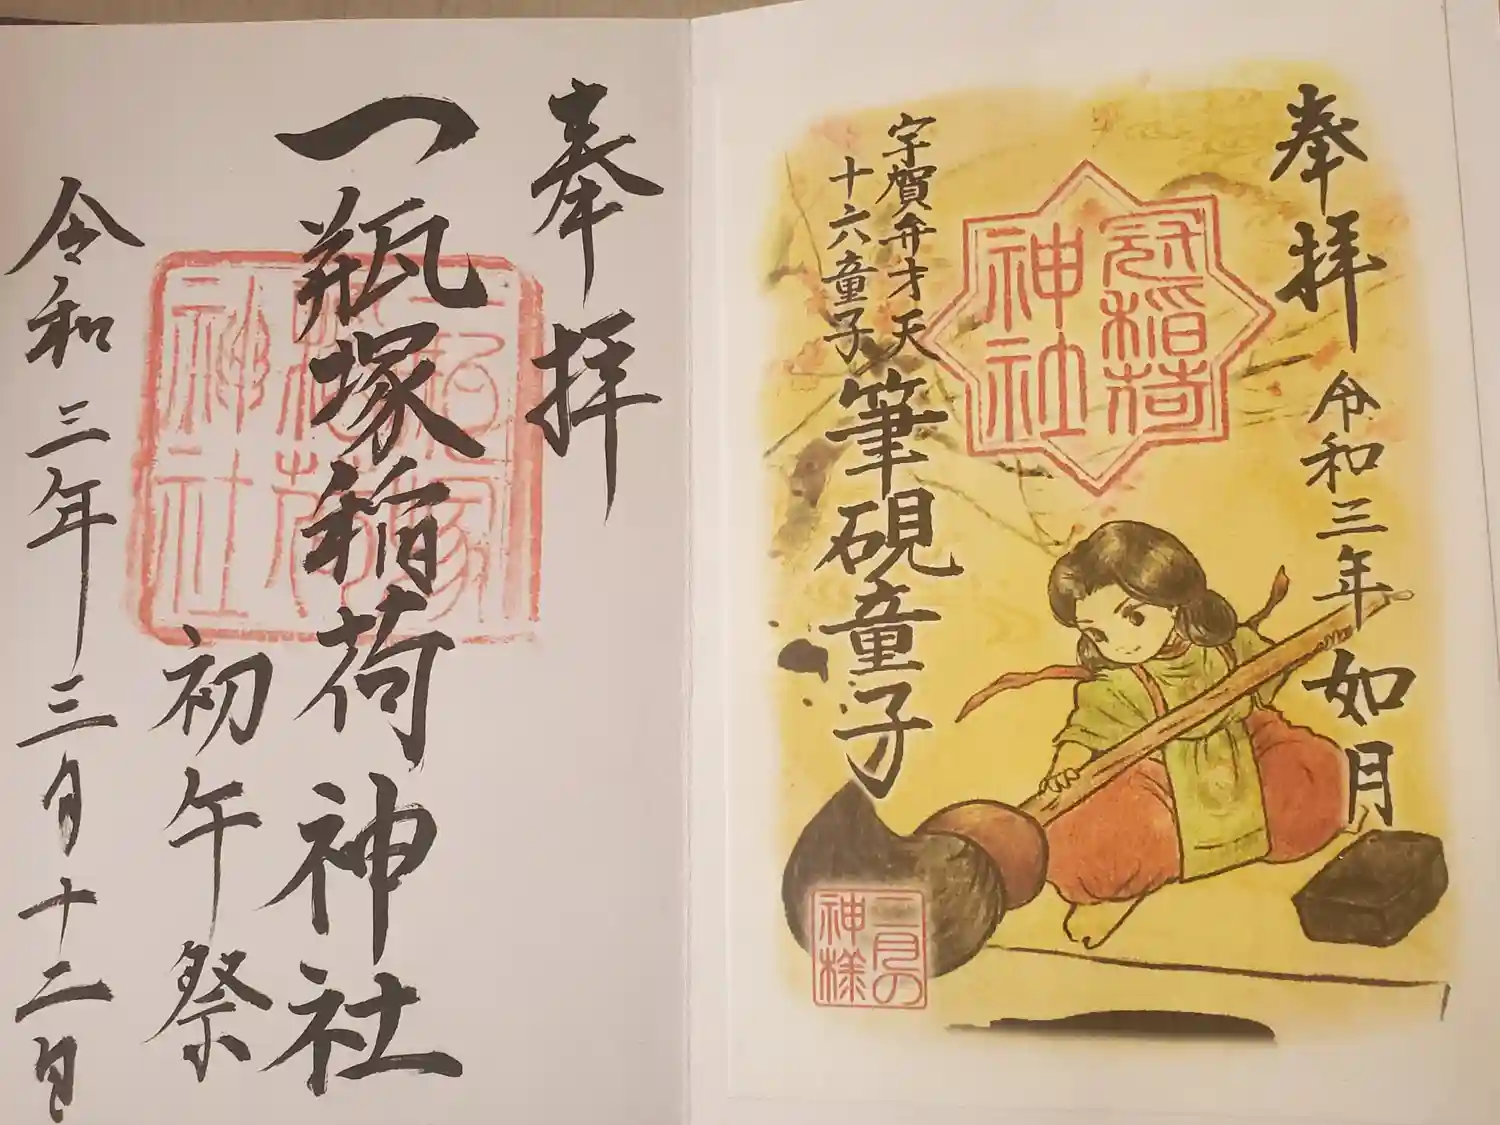 奉拝
令和三年如月
冠稲荷
神社
宇賀弁才天
十六童子
筆硯童子
二月の
神様
奉拝
一瓶塚稲荷神社
初午祭
令和三年三月十二日